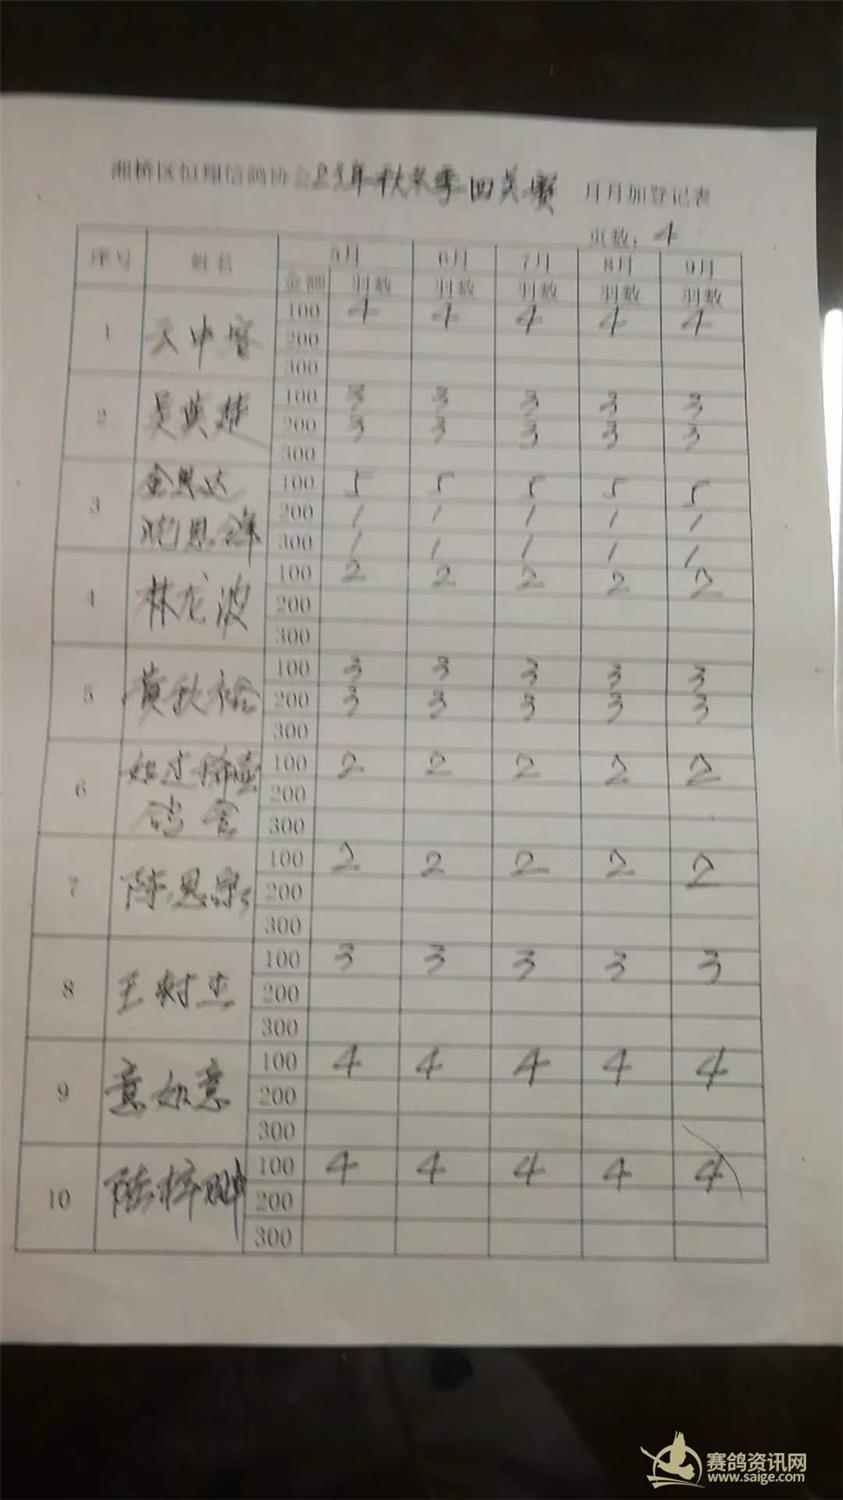 湘桥区恒翔信鸽协会 年秋冬季四关赛 月月加登记表
页数：4
序号 姓名 5月 6月 7月 8月 9月
金额 羽数 羽数 羽数 羽数 羽数
1 100 4 4 4 4 4
200
300
2 吴英楚 100 3 3 3 3 3
200 3 3 3 3 3
300
3 100 5 5 5 5 5
200 1 1 1 1 1
300 1 1 1 1 1
4 林龙波 100 2 2 2 2 2
200
300
5 黄秋裕 100 3 3 3 3 3
200 3 3 3 3 3
300
6 100 2 2 2 2 2
鸽舍 200
300
7 陈思 100 2 2 2 2 2
200
300
8 王树杰 100 3 3 3 3 3
200
300
9 意如意 100 4 4 4 4 4
200
300
10 100 4 4 4 4 4
200
300
赛鸽资讯网
www.saige.com